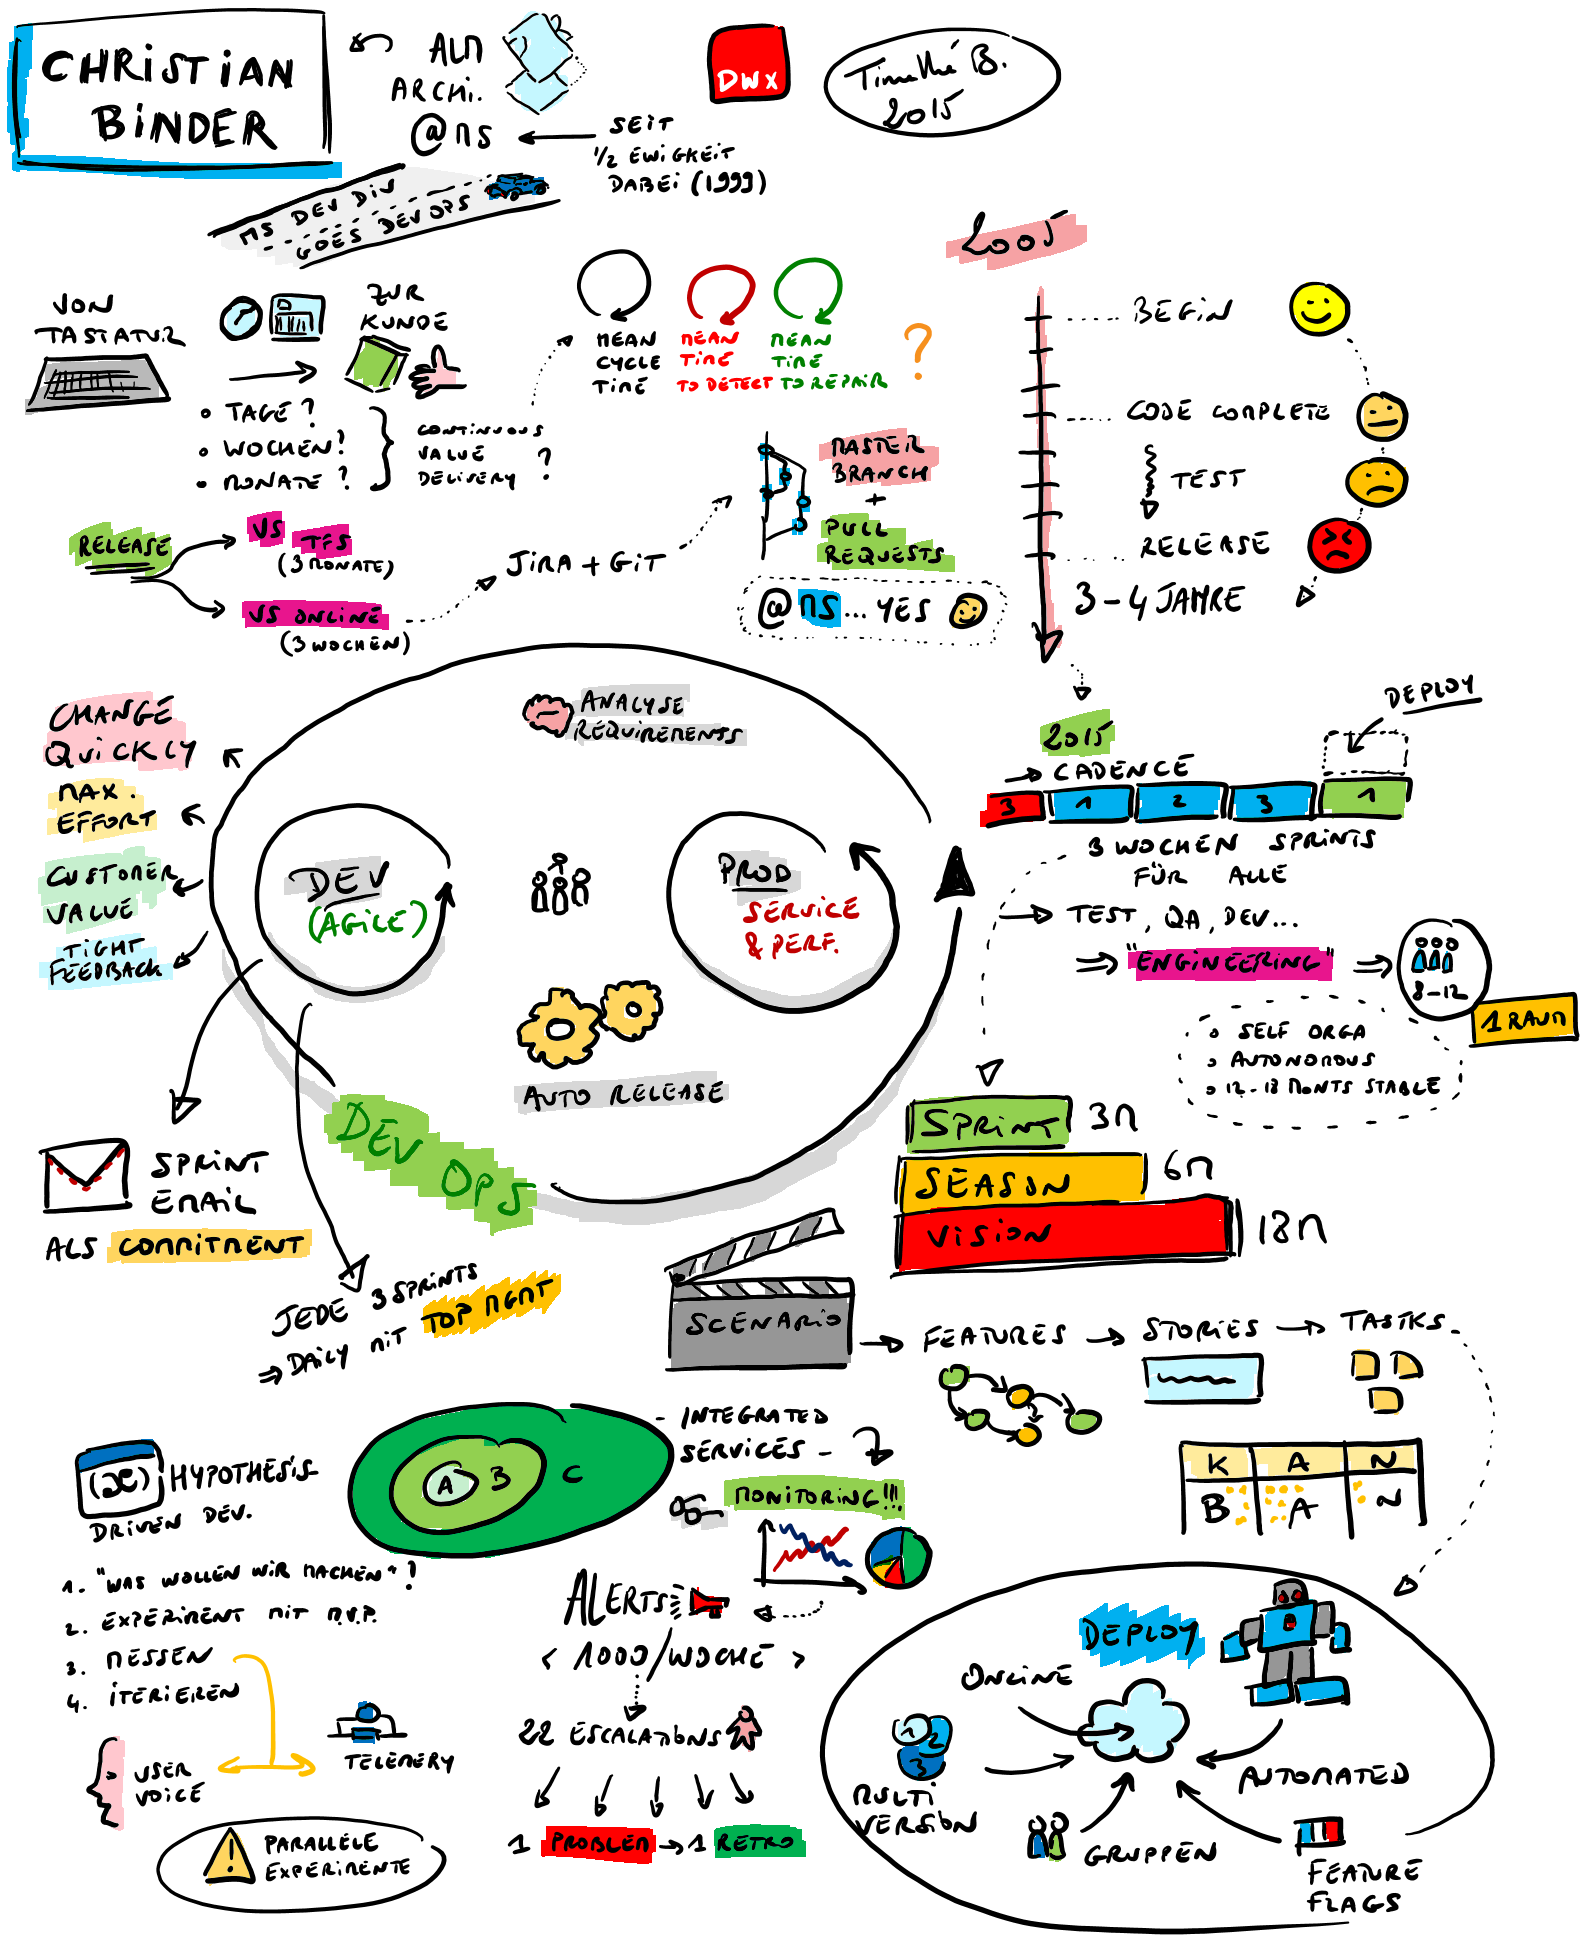 CHRISTIAN
BINDER
ALM
ARCHI.
@MS
SEIT
1/2 EWIGKEIT
DABEI (1999)
DWX
Timothé B.
2015
MS DEV DIV
GOES DEVOPS
VON
TASTATUR
ZUR
KUNDE
• TAGE ?
• WOCHEN?
• MONATE ?
CONTINUOUS
VALUE
DELIVERY ?
MEAN
CYCLE
TIME
MEAN
TIME
TO DETECT
MEAN
TIME
TO REPAIR
?
RELEASE
VS
TFS
(3 MONATE)
VS ONLINE
(3 WOCHEN)
JIRA + GIT
MASTER
BRANCH
+
PULL
REQUESTS
@ MS ... YES
2005
BEGIN
CODE COMPLETE
TEST
RELEASE
3-4 JAHRE
2015
CADENCE
DEPLOY
3 1 2 3 1
3 WOCHEN SPRINTS
FÜR ALLE
TEST, QA, DEV...
"ENGINEERING"
8-12
1 RAUM
• SELF ORGA
• AUTONOMOUS
• 12-18 MONTS STABLE
CHANGE
QUICKLY
MAX.
EFFORT
CUSTOMER
VALUE
TIGHT
FEEDBACK
ANALYSE
REQUIREMENTS
DEV
(AGILE)
PROD
SERVICE
& PERF.
AUTO RELEASE
DEV OPS
SPRINT 3M
SEASON 6M
VISION 18M
SPRINT
EMAIL
ALS COMMITMENT
JEDE 3 SPRINTS
⇒ DAILY MIT TOP MGMT
SCENARIO
FEATURES → STORIES → TASTKS
K A N
B A N
HYPOTHESIS
DRIVEN DEV.
1. "WAS WOLLEN WIR MACHEN"?
2. EXPERIMENT MIT M.V.P.
3. MESSEN
4. ITERIEREN
USER
VOICE
TELEMERY
PARALLELE
EXPERIMENTE
A B C
- INTEGRATED
SERVICES -
MONITORING!!!
ALERTS
< 1000/WOCHE >
22 ESCALATIONS
1 PROBLEM → 1 RETRO
DEPLOY
ONLINE
1 2 3
MULTI
VERSION
GRUPPEN
AUTOMATED
FEATURE
FLAGS